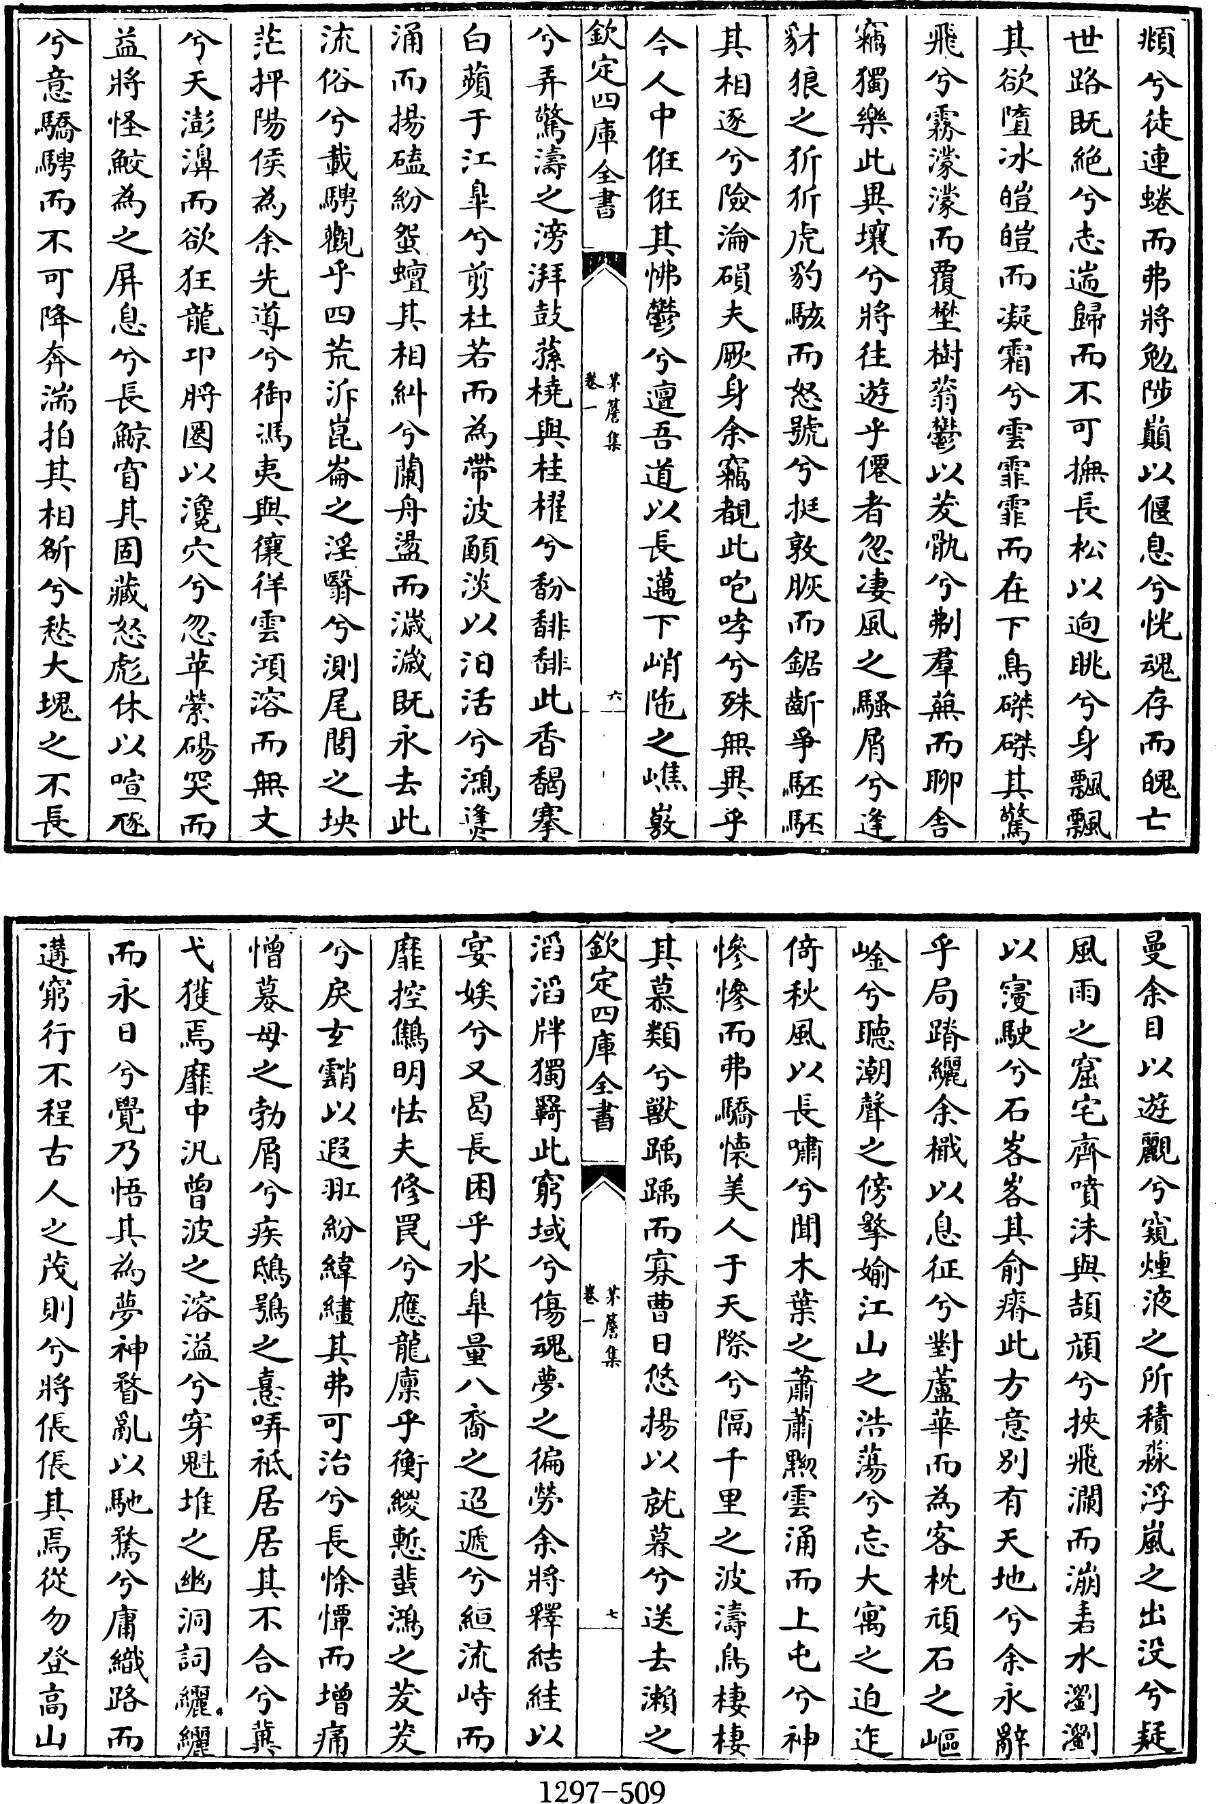 頫兮徒連蜷而弗將勉陟巔以偃息兮恍魂存而魄亡
世路既絶兮志遄歸而不可撫長松以逈眺兮身飄飄
其欲墮冰皚皚而凝霜兮雲霏霏而在下鳥磔磔其驚
飛兮霧濛濛而覆壄樹蓊鬱以茇骫兮剸羣蕪而聊舍
竊獨樂此異壤兮將往遊乎僊者忽凄風之騷屑兮逢
豺狼之狋狋虎豹駭而怒號兮挺敦脄而鋸齗爭駓駓
其相逐兮險淪磒夫厥身余竊覩此咆哮兮殊無異乎
今人中俇俇其怫鬱兮邅吾道以長邁下峭阤之嶕嶅
欽定四庫全書
茅簷集
卷一
六
兮弄驚濤之滂湃鼓蓀橈與桂櫂兮馚馡馡此香馤搴
白蘋于江臯兮剪杜若而為帶波頋淡以汩活兮鴻溰
涌而揚磕紛蜿蟺其相糾兮蘭舟盪而濊濊既永去此
流俗兮載騁觀乎四荒泝崑崙之淫翳兮測尾閭之坱
茫抨陽侯為余先導兮御馮夷與儴佯雲澒溶而無文
兮天澎濞而欲狂龍卭將圈以瀺穴兮忽苹縈碭突而
益將怪鮫為之屏息兮長鯨窅其固藏怒彪休以喧豗
兮意驕騁而不可降奔湍拍其相斮兮愁大塊之不長
曼余目以遊觀兮窺煙液之所積淼浮嵐之出没兮疑
風雨之窟宅齊噴沬與頡頏兮挾飛瀾而漰湱水瀏瀏
以寖駛兮石峉峉其俞瘠此方意别有天地兮余永辭
乎局蹐纚余檝以息征兮對蘆華而為客枕頑石之嶇
崯兮聽潮聲之傍擊媮江山之浩蕩兮忘大寓之迫迮
倚秋風以長嘯兮聞木葉之蕭蕭黝雲涌而上屯兮神
慘慘而弗驕懐美人于天際兮隔千里之波濤鳥棲棲
其慕類兮獸踽踽而寡曹日悠揚以就暮兮送去瀨之
欽定四庫全書
茅簷集
卷一
七
滔滔牉獨羇此窮域兮傷魂夢之徧勞余將釋結絓以
宴娭兮又曷長困乎水臯量八裔之迢遞兮絙流峙而
靡控鷦明怯夫修罠兮應龍凜乎衡緵慙蜚鴻之茇茇
兮戾玄霄以遐羾紛緯繣其弗可治兮長悇憛而增痛
憎嫫母之勃屑兮疾鴟鴞之憙哢祗居居其不合兮冀
弋獲焉靡中汎曽波之溶溢兮穿魁堆之幽洞詞纚纚
而永日兮覺乃悟其為夢神瞀亂以馳騖兮庸織路而
遘窮行不程古人之茂則兮將倀倀其焉從勿登高山
1297-509